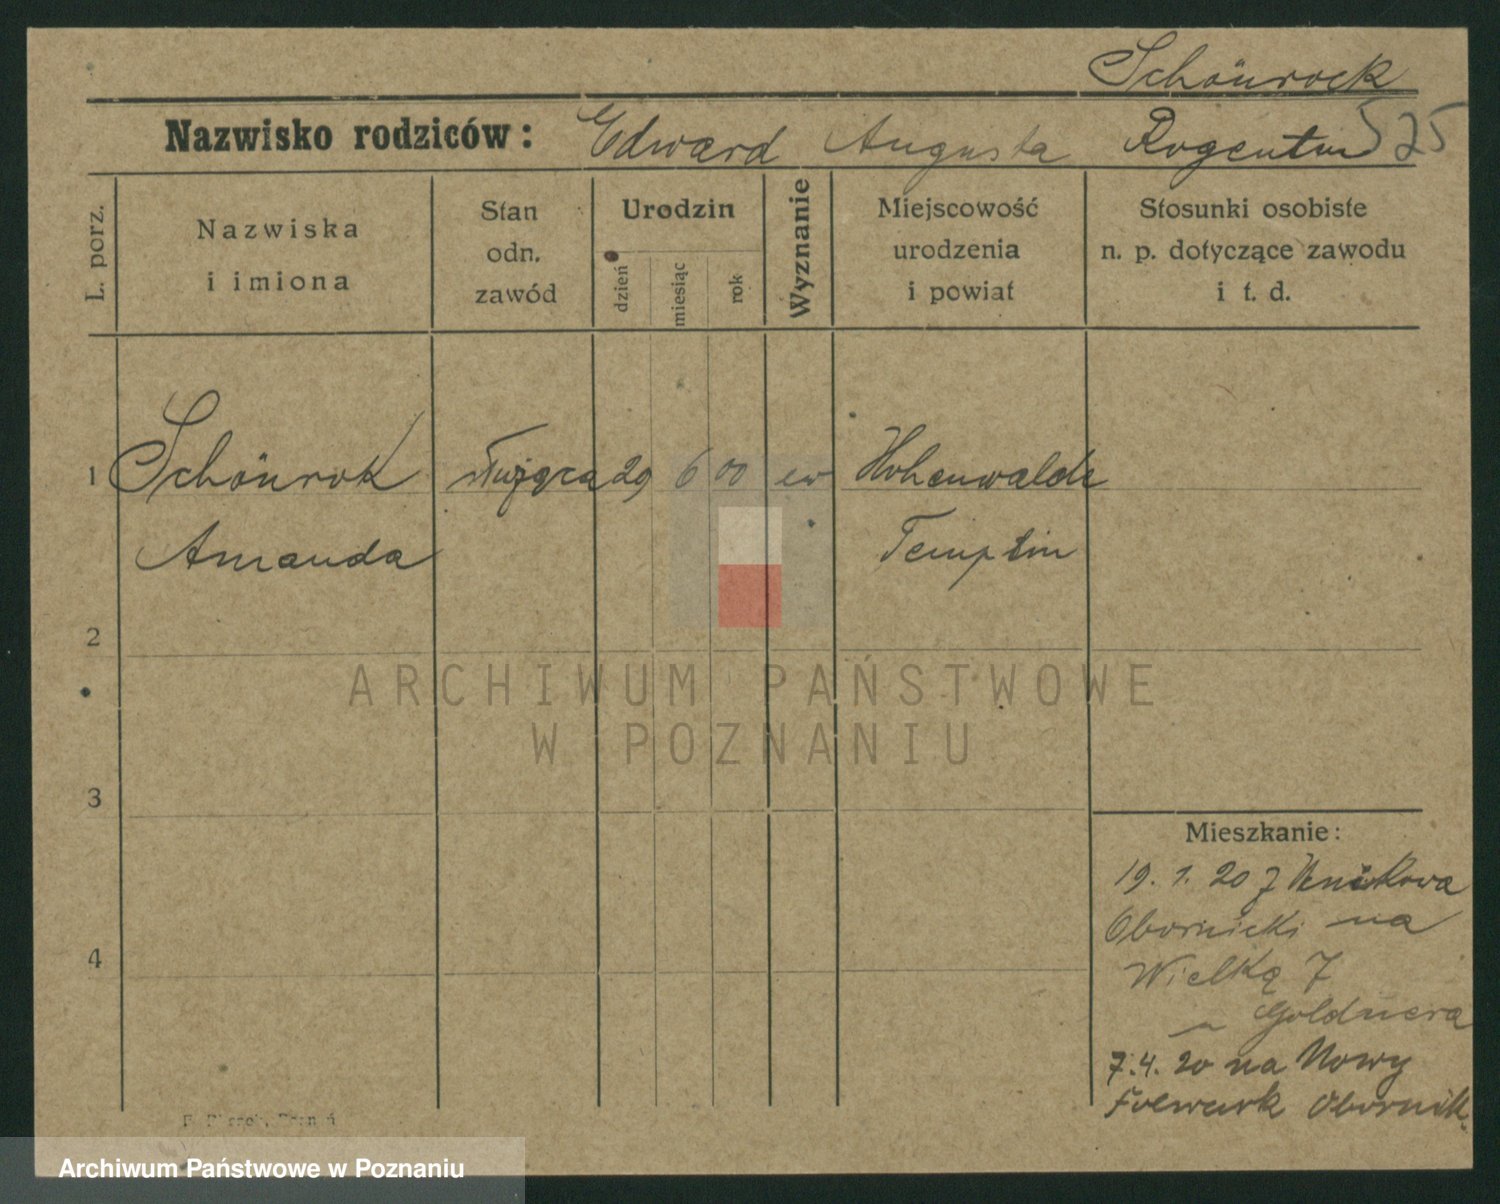 Schönrock
Nazwisko rodziców: Edward Augusta Rogentin 525
L. porz.
Nazwiska
i imiona
Stan
odn.
zawód
Urodzin
dzień
miesiąc
rok
Wyznanie
Miejscowość
urodzenia
i powiat
Stosunki osobiste
n. p. dotyczące zawodu
i t. d.
1 Schönrok służąca 29 6 00 ew Hohenwalde
Amanda Templin
2
ARCHIWUM PAŃSTWOWE
W POZNANIU
3
Mieszkanie:
19. 1. 20 z
Obornicki na
4
Wielką 7
Goldnera
7.4. 20 na Nowy
Folwark Obornik.
Poznań
Archiwum Państwowe w Poznaniu